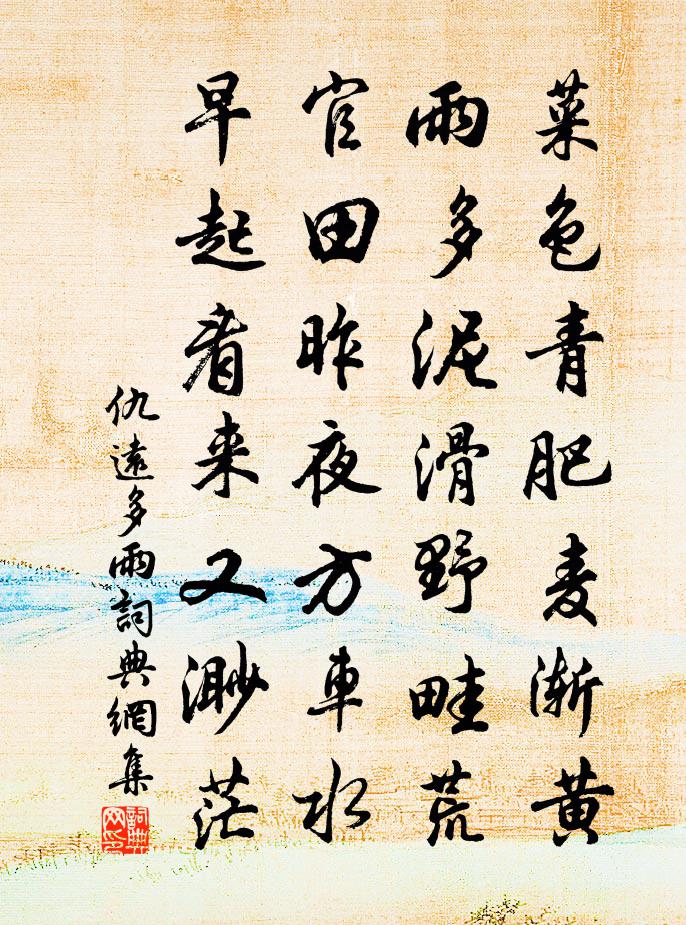 菜色青肥麦渐黄
雨多泥滑野畦荒
官田昨夜方車水
早起看来又渺茫
仇遠多雨詞典網集
詞典网印